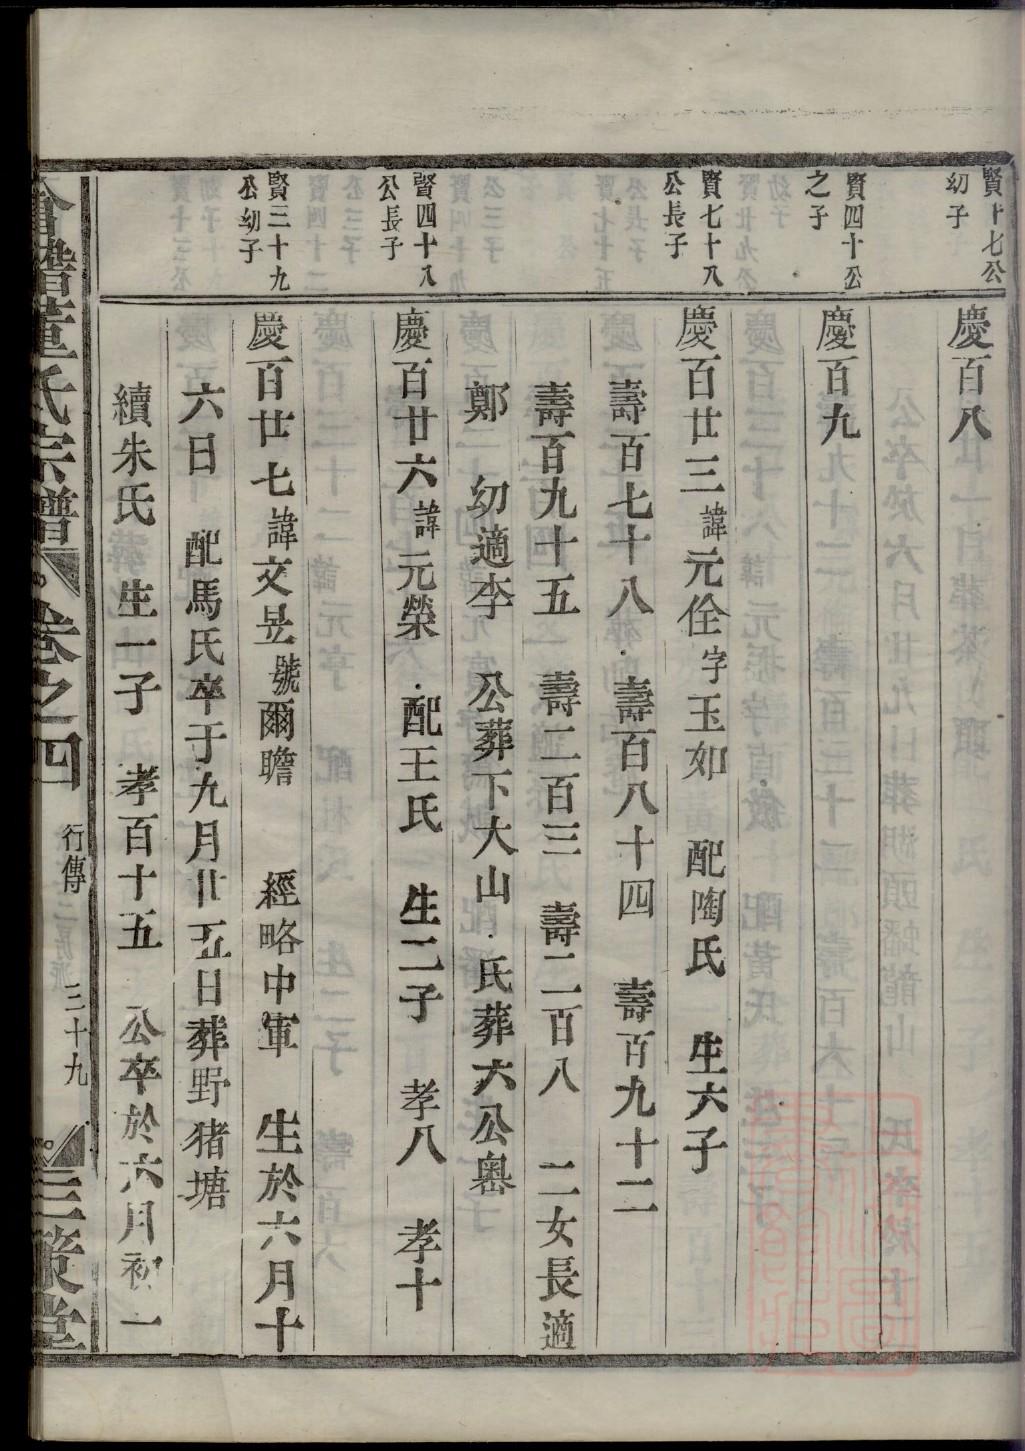 賢十七公
幼子
慶百八
賢四十公
之子
慶百九
賢七十八
公長子
慶百廿三諱元佺字玉如 配陶氏 生六子
壽百七十八 壽百八十四 壽百九十二
壽百九十五 壽二百三 壽二百八 二女長適
鄭 幼適李 公葬下大山 氏葬六公嶴
賢四十八
公長子
慶百廿六諱元榮 配王氏 生二子 孝八 孝十
賢三十九
公幼子
慶百廿七諱文昱號爾瞻 經略中軍 生於六月十
六日 配馬氏卒于九月廿五日葬野猪塘
續朱氏 生一子 孝百十五 公卒於六月初一
會稽董氏宗譜 卷之四 行傳 三十九 三策堂